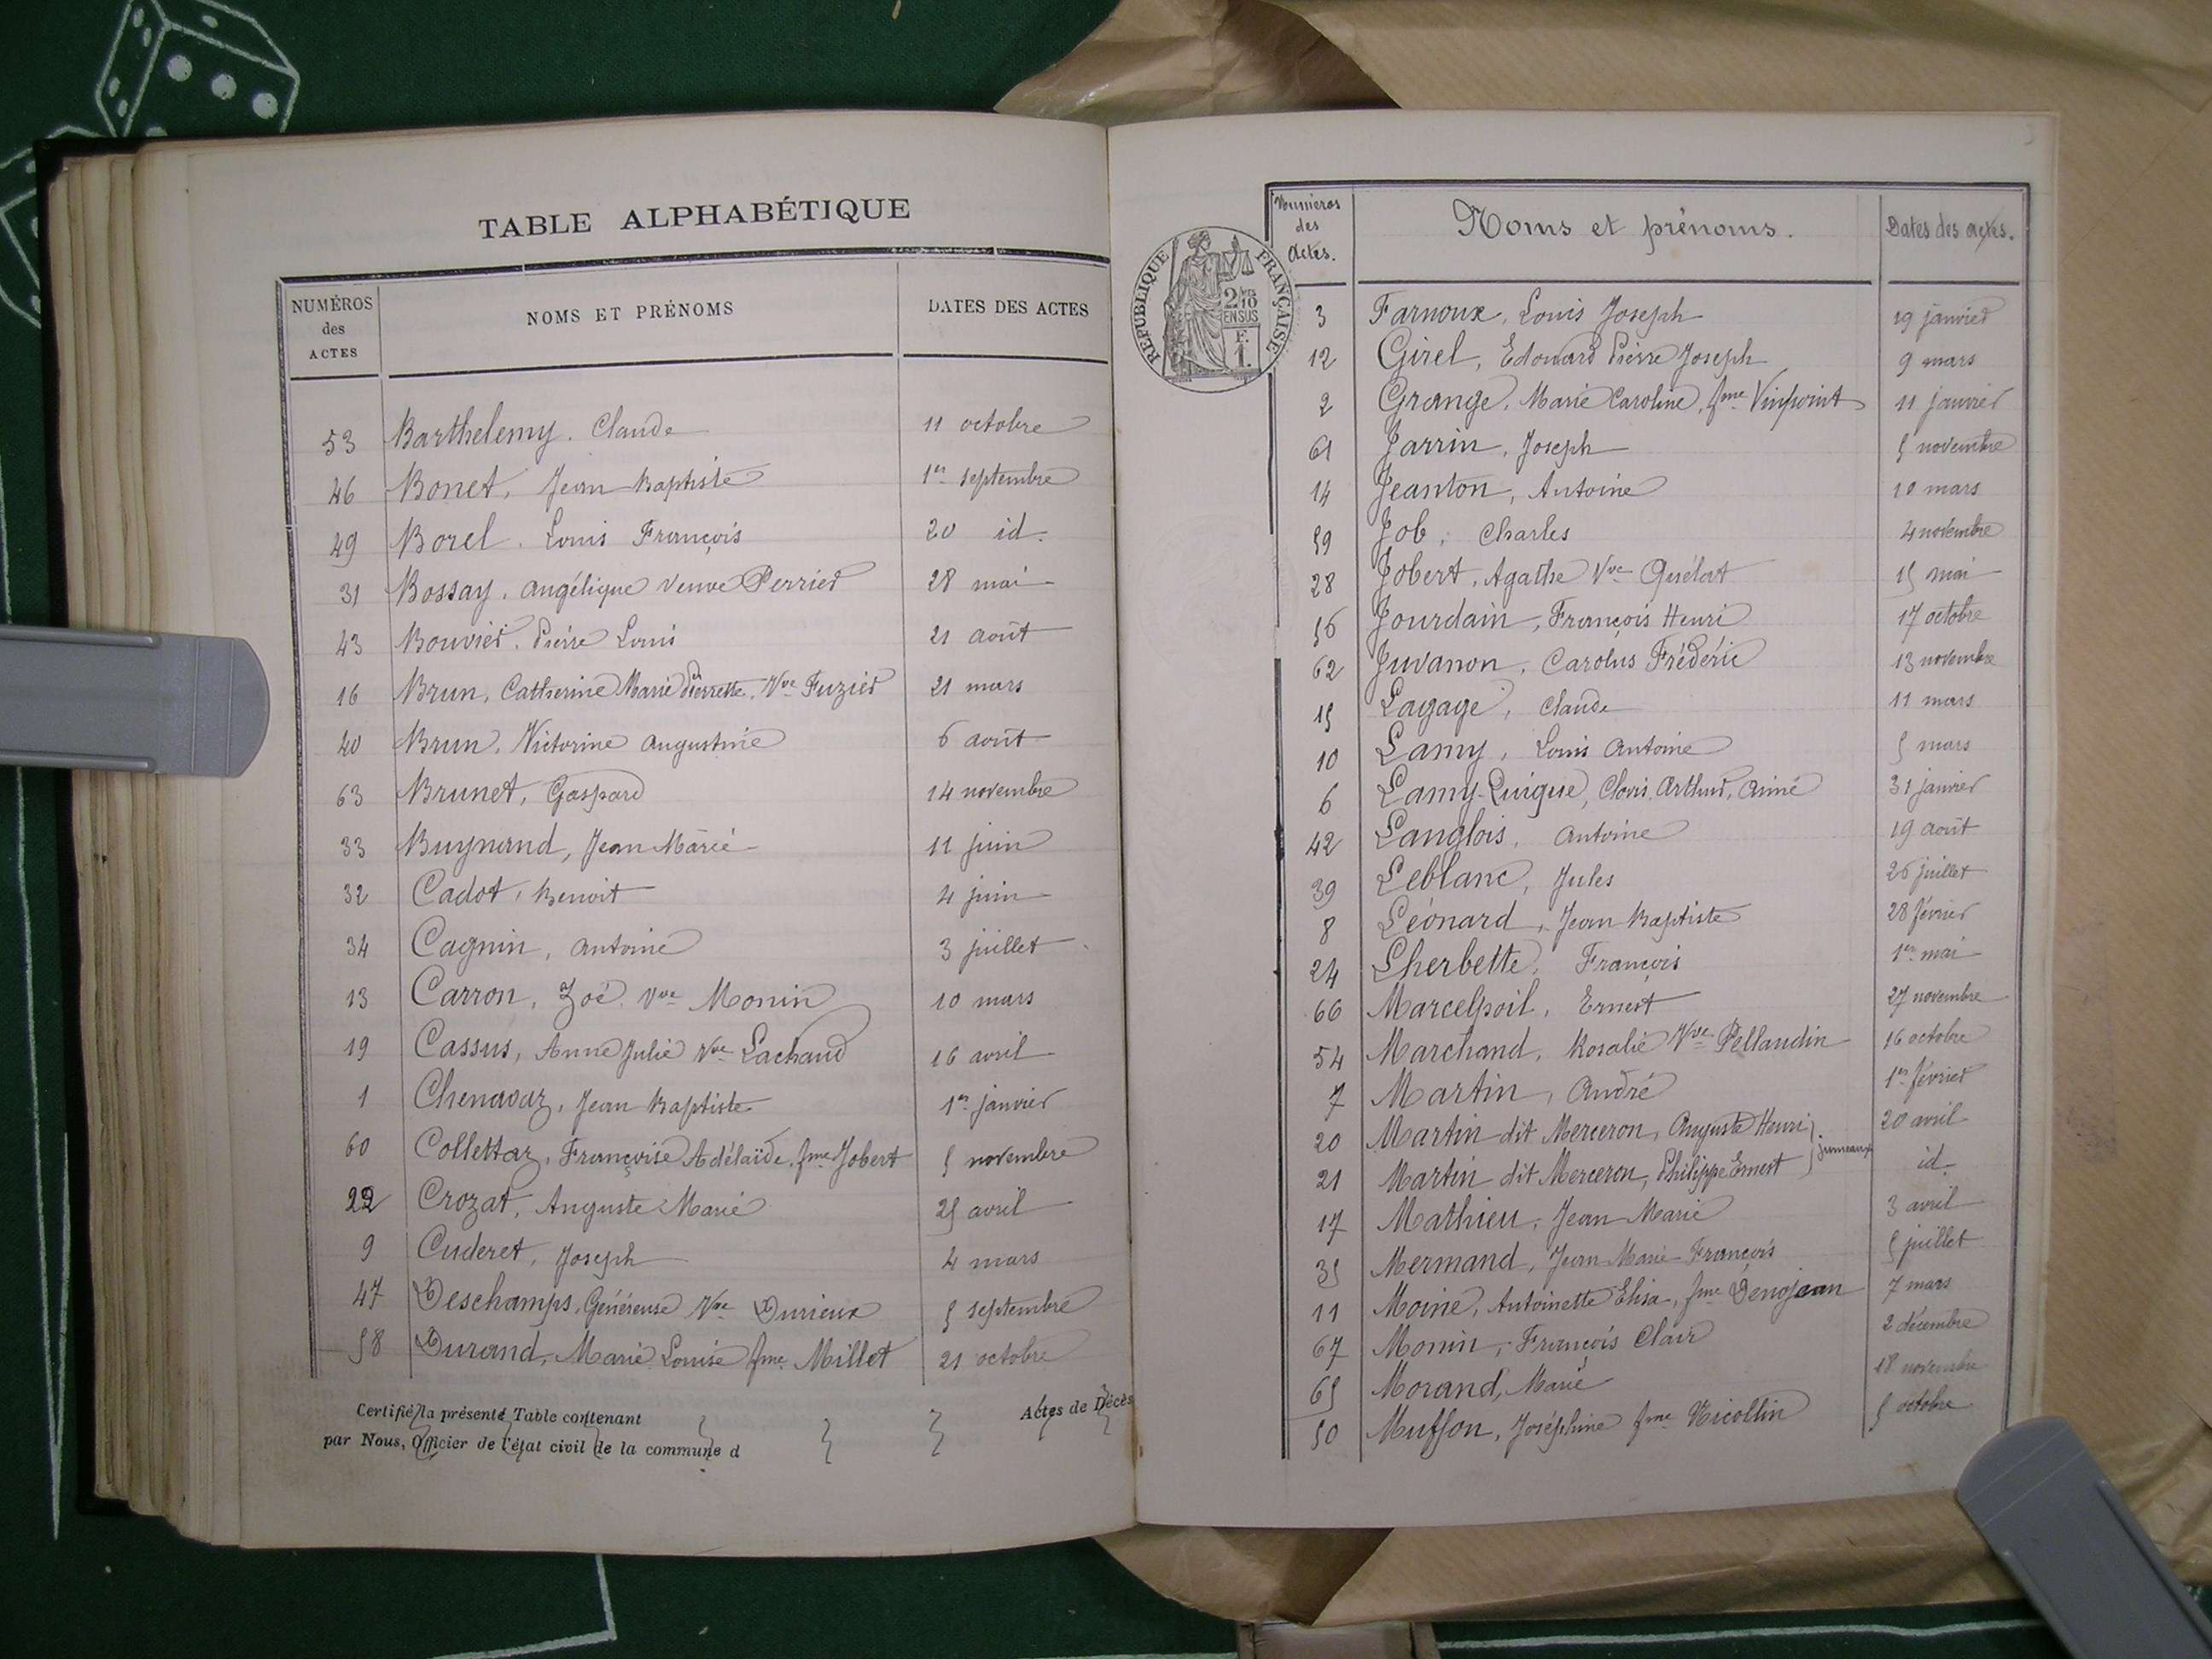 TABLE ALPHABÉTIQUE
NUMÉROS des ACTES NOMS ET PRÉNOMS DATES DES ACTES
53 Barthelemy. Claude 11 octobre
46 Bonet, Jean Baptiste 1er septembre
49 Borel. Louis François 20 id.
31 Bossay. Angélique veuve Perrier 28 mai
43 Bouvier. Pierre Louis 21 août
16 Brun, Catherine Marie Pierrette, Vve Fuzier 21 mars
40 Brun, Victorine Augustine 6 août
63 Brunet, Gaspard 14 novembre
33 Buynand, Jean Marie 11 juin
32 Cadot, Benoit 4 juin
34 Cagnin, Antoine 3 juillet
13 Carron, Zoé. Vve Monin 10 mars
19 Cassus, Anne Julie Vve Lachaud 16 avril
1 Chenavaz, Jean Baptiste 1er janvier
60 Collettaz, Françoise Adélaïde, fme Jobert 5 novembre
22 Crozat, Auguste Marie 25 avril
9 Cuderet, Joseph 4 mars
47 Deschamps, Généreuse Vve Durieux 5 septembre
58 Durand, Marie Louise fme Millet 21 octobre
Certifié la présente Table contenant Actes de Décès
par Nous, Officier de l'état civil de la commune d
RÉPUBLIQUE FRANÇAISE
2/10 EN SUS
F. 1.
Numéros des Actes. Noms et prénoms. Dates des actes.
3 Farnoux, Louis Joseph 19 janvier
12 Girel, Edouard Pierre Joseph 9 mars
2 Grange, Marie Caroline, fme Vinpoint 11 janvier
61 Jarrin, Joseph 5 novembre
14 Jeanton, Antoine 10 mars
59 Job, Charles 4 novembre
28 Jobert, Agathe Vve Quélat 15 mai
56 Jourdain, François Henri 17 octobre
62 Juvanon, Carolus Frédéric 13 novembre
15 Lagage, Claude 11 mars
10 Lamy, Louis Antoine 5 mars
6 Lamy-Quigue, Clovis, Arthur, Aimé 31 janvier
42 Langlois, Antoine 19 août
39 Leblanc, Jules 26 juillet
8 Léonard, Jean Baptiste 28 février
24 Lherbette, François 1er mai
66 Marcelpoil, Ernest 27 novembre
54 Marchand, Rosalie Vve Pellaudin 16 octobre
7 Martin, André 1er février
20 Martin dit Merceron, Auguste Henri 20 avril
jumeaux
21 Martin dit Merceron, Philippe Ernest id.
17 Mathieu, Jean Marie 3 avril
35 Mermand, Jean Marie François 5 juillet
11 Moine, Antoinette Elisa, fme Denojean 7 mars
67 Monin, François Clair 2 décembre
65 Morand, Marie 18 novembre
50 Musson, Joséphine fme Nicollin 5 octobre